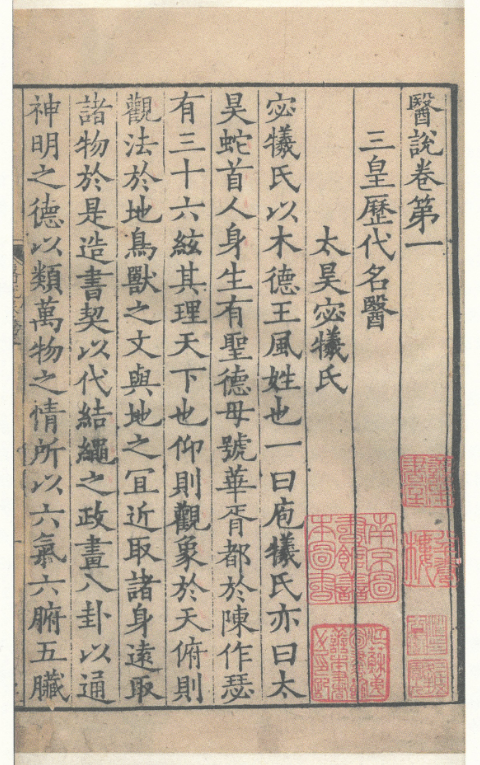 醫說卷第一
三皇歷代名醫
太昊宓犧氏
宓犧氏以木德王風姓也一曰庖犧氏亦曰太
昊蛇首人身生有聖德母號華胥都於陳作瑟
有三十六絃其理天下也仰則觀象於天俯則
觀法於地鳥獸之文與地之冝近取諸身遠取
諸物於是造書契以代結繩之政畫八卦以通
神明之德以類萬物之情所以六氣六腑五臟
南京圖
書館善
本圖書